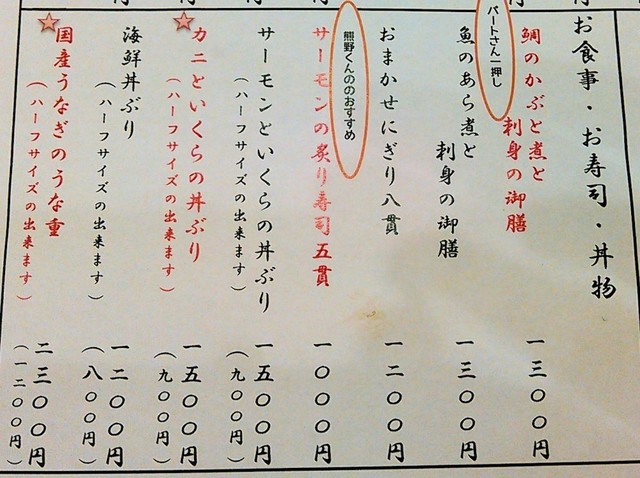 お食事・お寿司・丼物
パートさん一押し
鯛のかぶと煮と
刺身の御膳
一三〇〇円
魚のあら煮と
刺身の御膳
一三〇〇円
おまかせにぎり八貫
一二〇〇円
熊野くんののおすすめ
サーモンの炙り寿司五貫
一〇〇〇円
サーモンといくらの丼ぶり
一五〇〇円
(ハーフサイズの出来ます)
(九〇〇円)
カニといくらの丼ぶり
一五〇〇円
(ハーフサイズの出来ます)
(九〇〇円)
海鮮丼ぶり
一二〇〇円
(ハーフサイズの出来ます)
(八〇〇円)
国産うなぎのうな重
二三〇〇円
(ハーフサイズの出来ます)
(一二〇〇円)